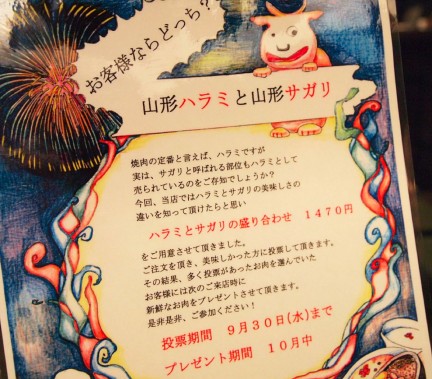 お客様ならどっち？
山形ハラミと山形サガリ
焼肉の定番と言えば、ハラミですが
実は、サガリと呼ばれる部位もハラミとして
売られているのをご存知でしょうか？
今回、当店ではハラミとサガリの美味しさの
違いを知って頂けたらと思い
ハラミとサガリの盛り合わせ 1470円
をご用意させて頂きました。
ご注文を頂き、美味しかった方に投票して頂きます。
その結果、多く投票があったお肉を選んでいた
お客様には次のご来店時に
新鮮なお肉をプレゼントさせて頂きます。
是非是非、ご参加ください！
投票期間 9月30日(水)まで
プレゼント期間 10月中